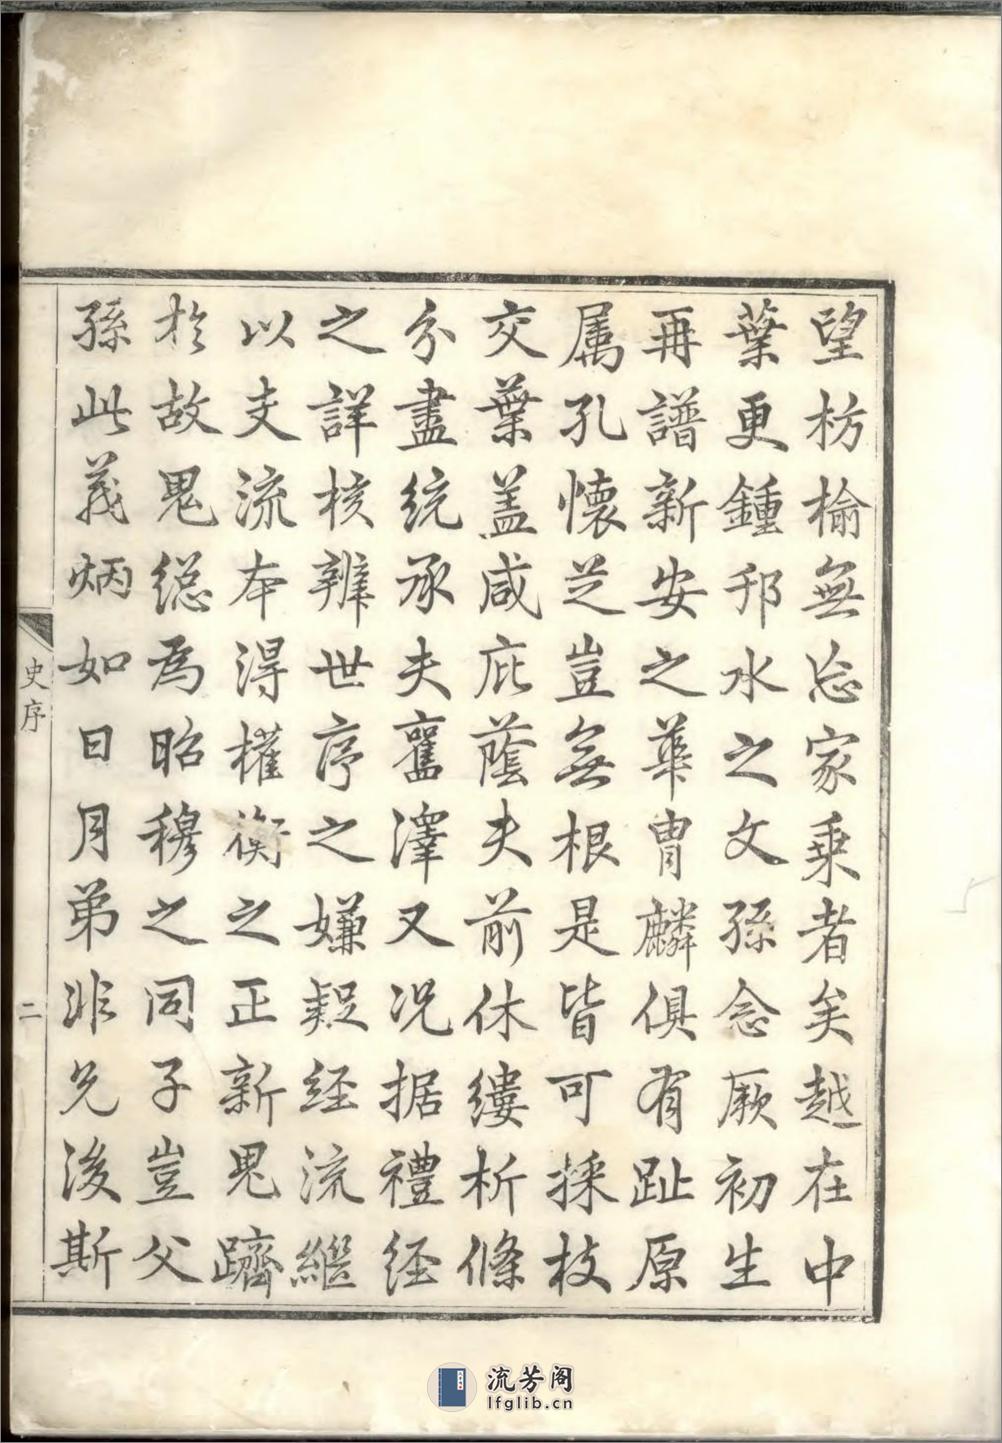 望枌榆無忘家乘者矣越在中
葉更鍾邗水之文孫念厥初生
再譜新安之華胄麟俱有趾原
属孔懷芝豈無根是皆可採枝
交葉盖咸庇蔭夫前休縷析條
分盡統承夫舊澤又况据禮经
之詳核辨世序之嫌疑经流繼
以支流本得權衡之正新鬼躋
於故鬼総為昭穆之同子豈父
孫此義炳如日月弟非兄後斯
史序
二
流芳阁
lfglib.cn